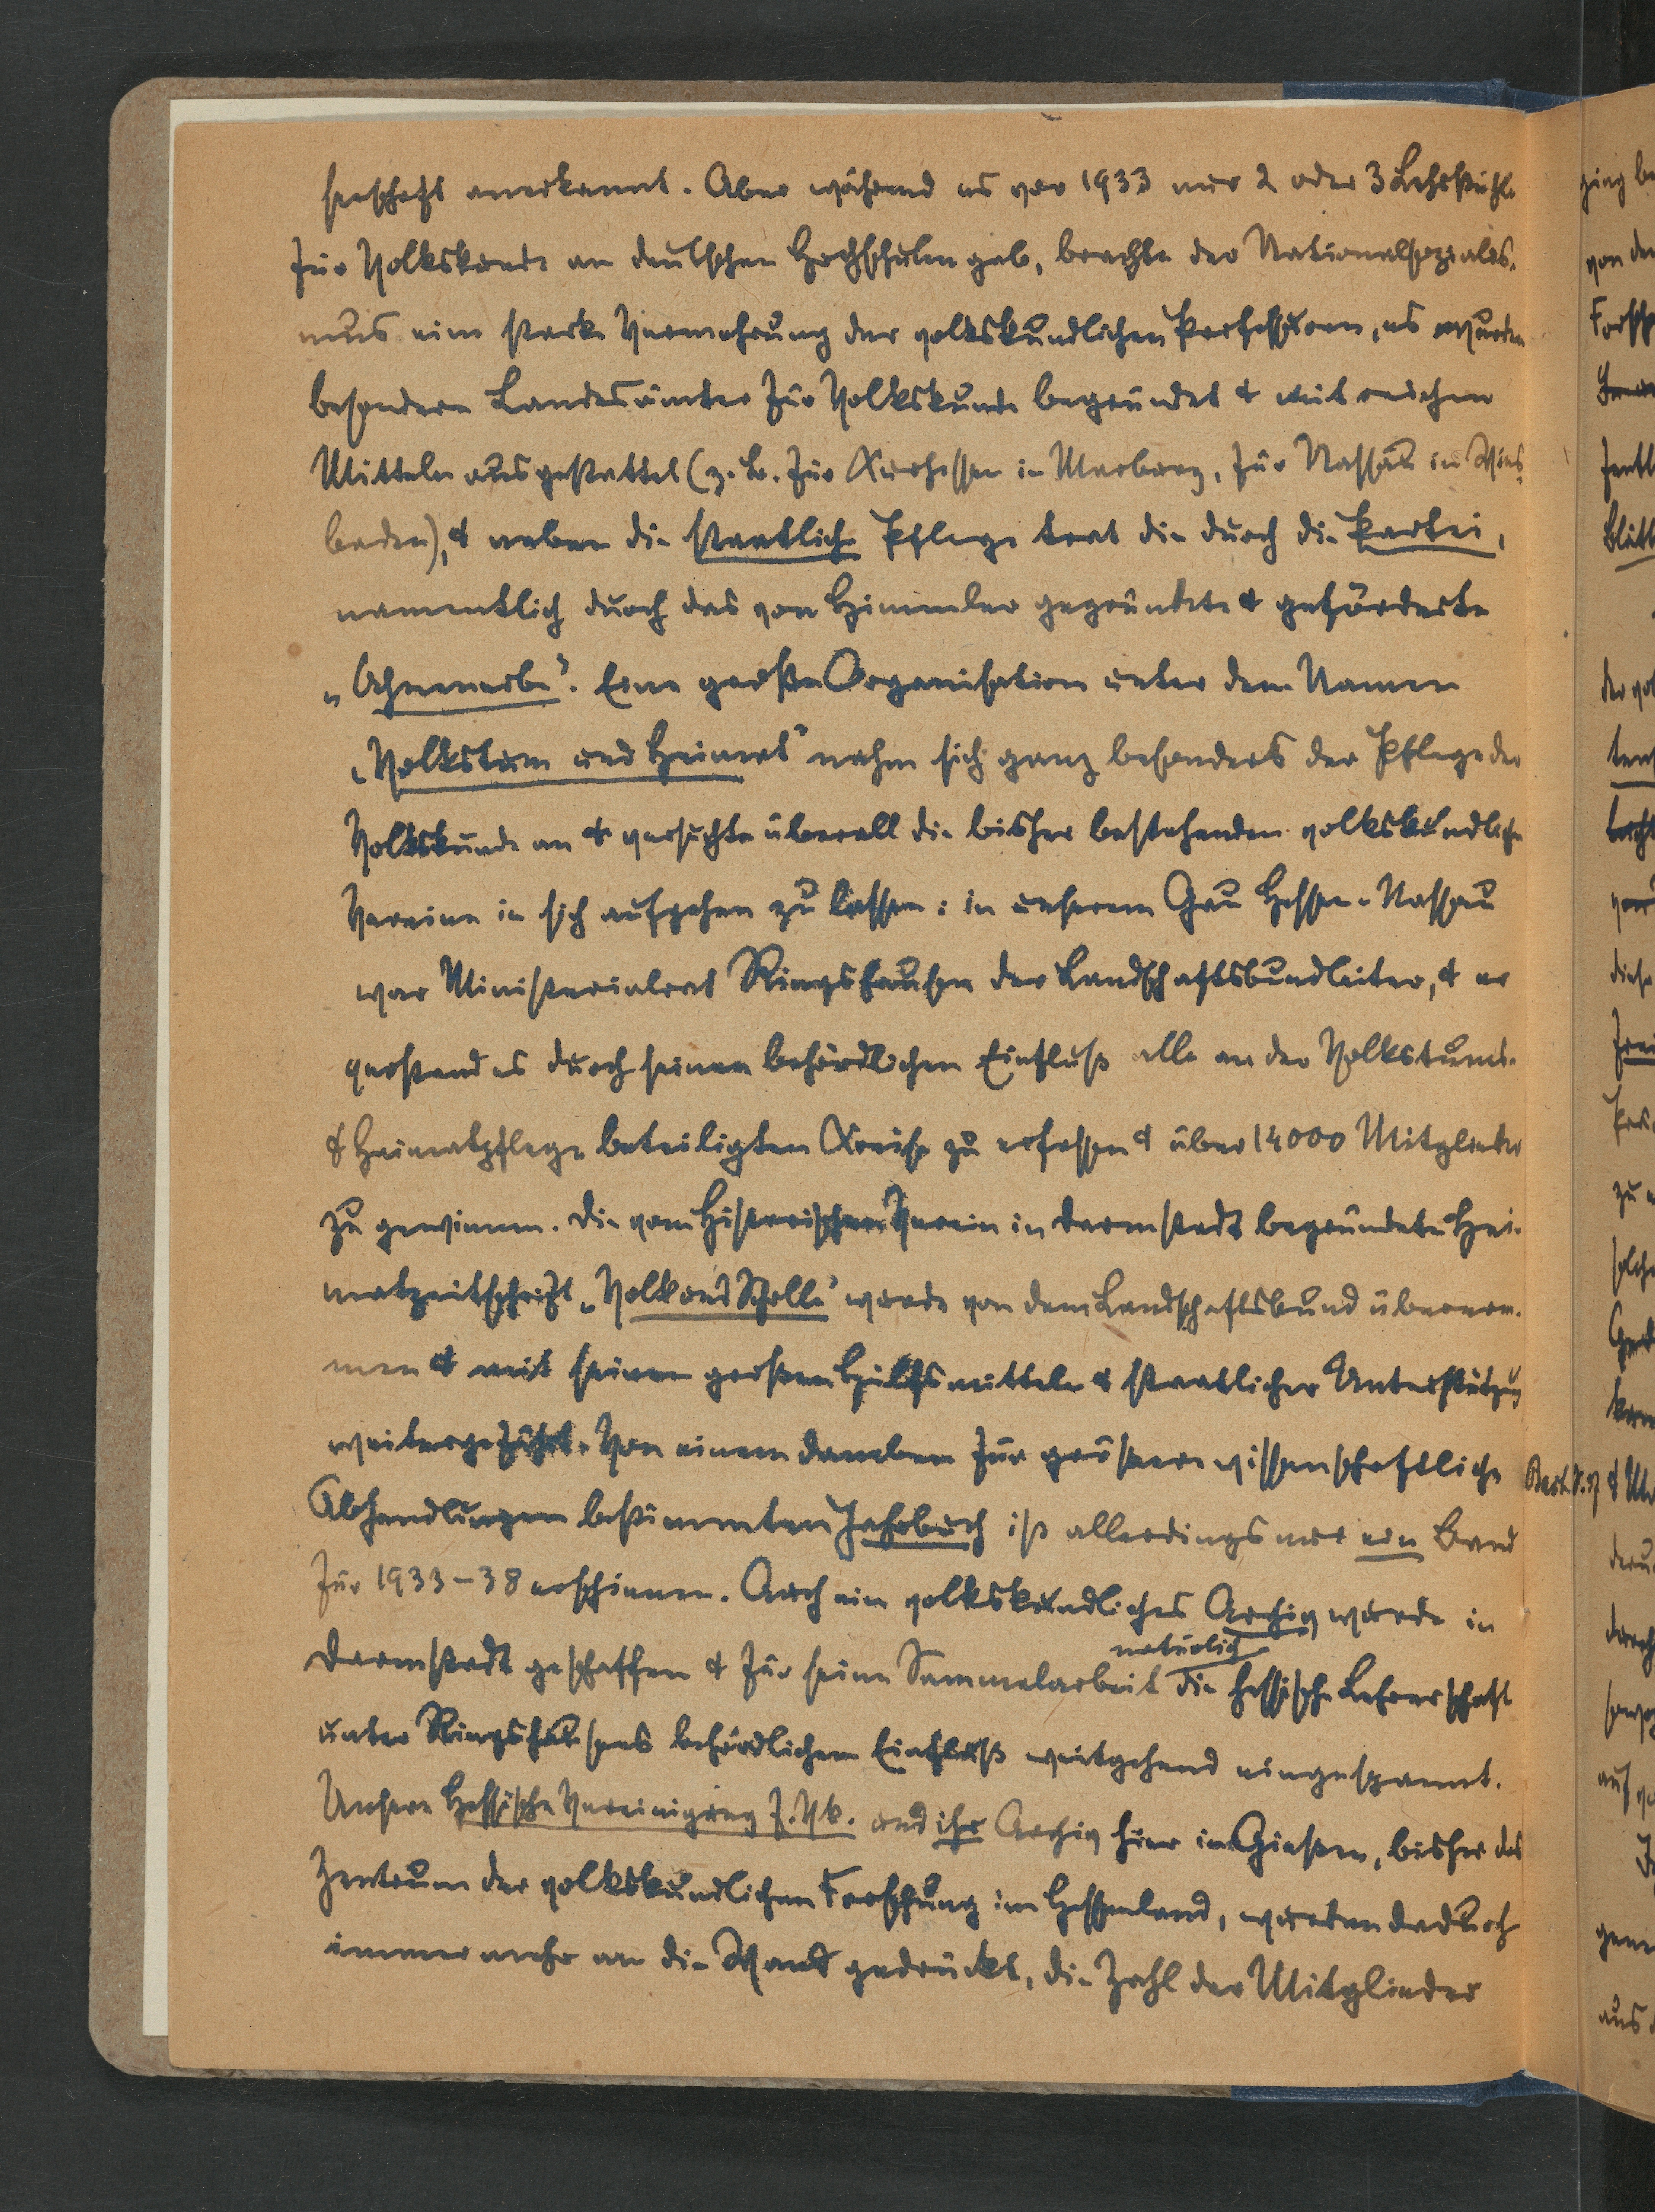 senschaft anerkannt. Aber während es vor 1933 nur 2 oder 3 Lehrstühle
für Volkskunde an deutschen Hochschulen gab, brachte der Nationalsozialis-
mus eine starke Vermehrung der volkskundlichen Professuren, es wurden
besondere Landesämter für Volkskunde begründet & mit reichen
Mitteln ausgestattet (z. B. für Kurhessen in Marburg, für Nassau in Wies-
baden), & neben die staatliche Pflege trat die durch die Partei,
namentlich durch das von Himmler gegründete & geförderte
„Ahnenerbe“. Eine große Organisation unter dem Namen
„Volkstum und Heimat“ nahm sich ganz besonders der Pflege der
Volkskunde an & versuchte überall die bisher bestehenden volkskundliche
Vereine in sich aufgehen zu lassen: in unserem Gau Hessen-Nassau
war Ministerialrat Ringshausen der Landschaftsbundleiter, & er
verstand es durch seinen behördlichen Einfluß alle an der Volkstums-
& Heimatpflege beteiligten Kreise zu erfassen & über 14000 Mitglieder
zu gewinnen. Die vom Historischen Verein in Darmstadt begründete Hei-
matzeitschrift „Volk und Scholle“ wurde von dem Landschaftsbund übernom-
men & mit seinen großen Hülfsmitteln & staatlicher Unterstützung
weitergeführt. Von einem daneben für größere wissenschaftliche
Abhandlungen bestimmten Jahrbuch ist allerdings nur ein Band
für 1933-38 erschienen. Auch ein volkskundliches Archiv wurde in
Darmstadt geschaffen & für seine Sammelarbeit natürlich die hessische Lehrerschaft
unter Ringshausens behördlichem Einfluß weitgehend eingespannt.
Unsere Hessische Vereinigung f. Vk. und ihr Archiv hier in Gießen, bisher das
Zentrum der volkskundlichen Forschung im Hessenland, wurden dadurch
immer mehr an die Wand gedrückt, die Zahl der Mitglieder